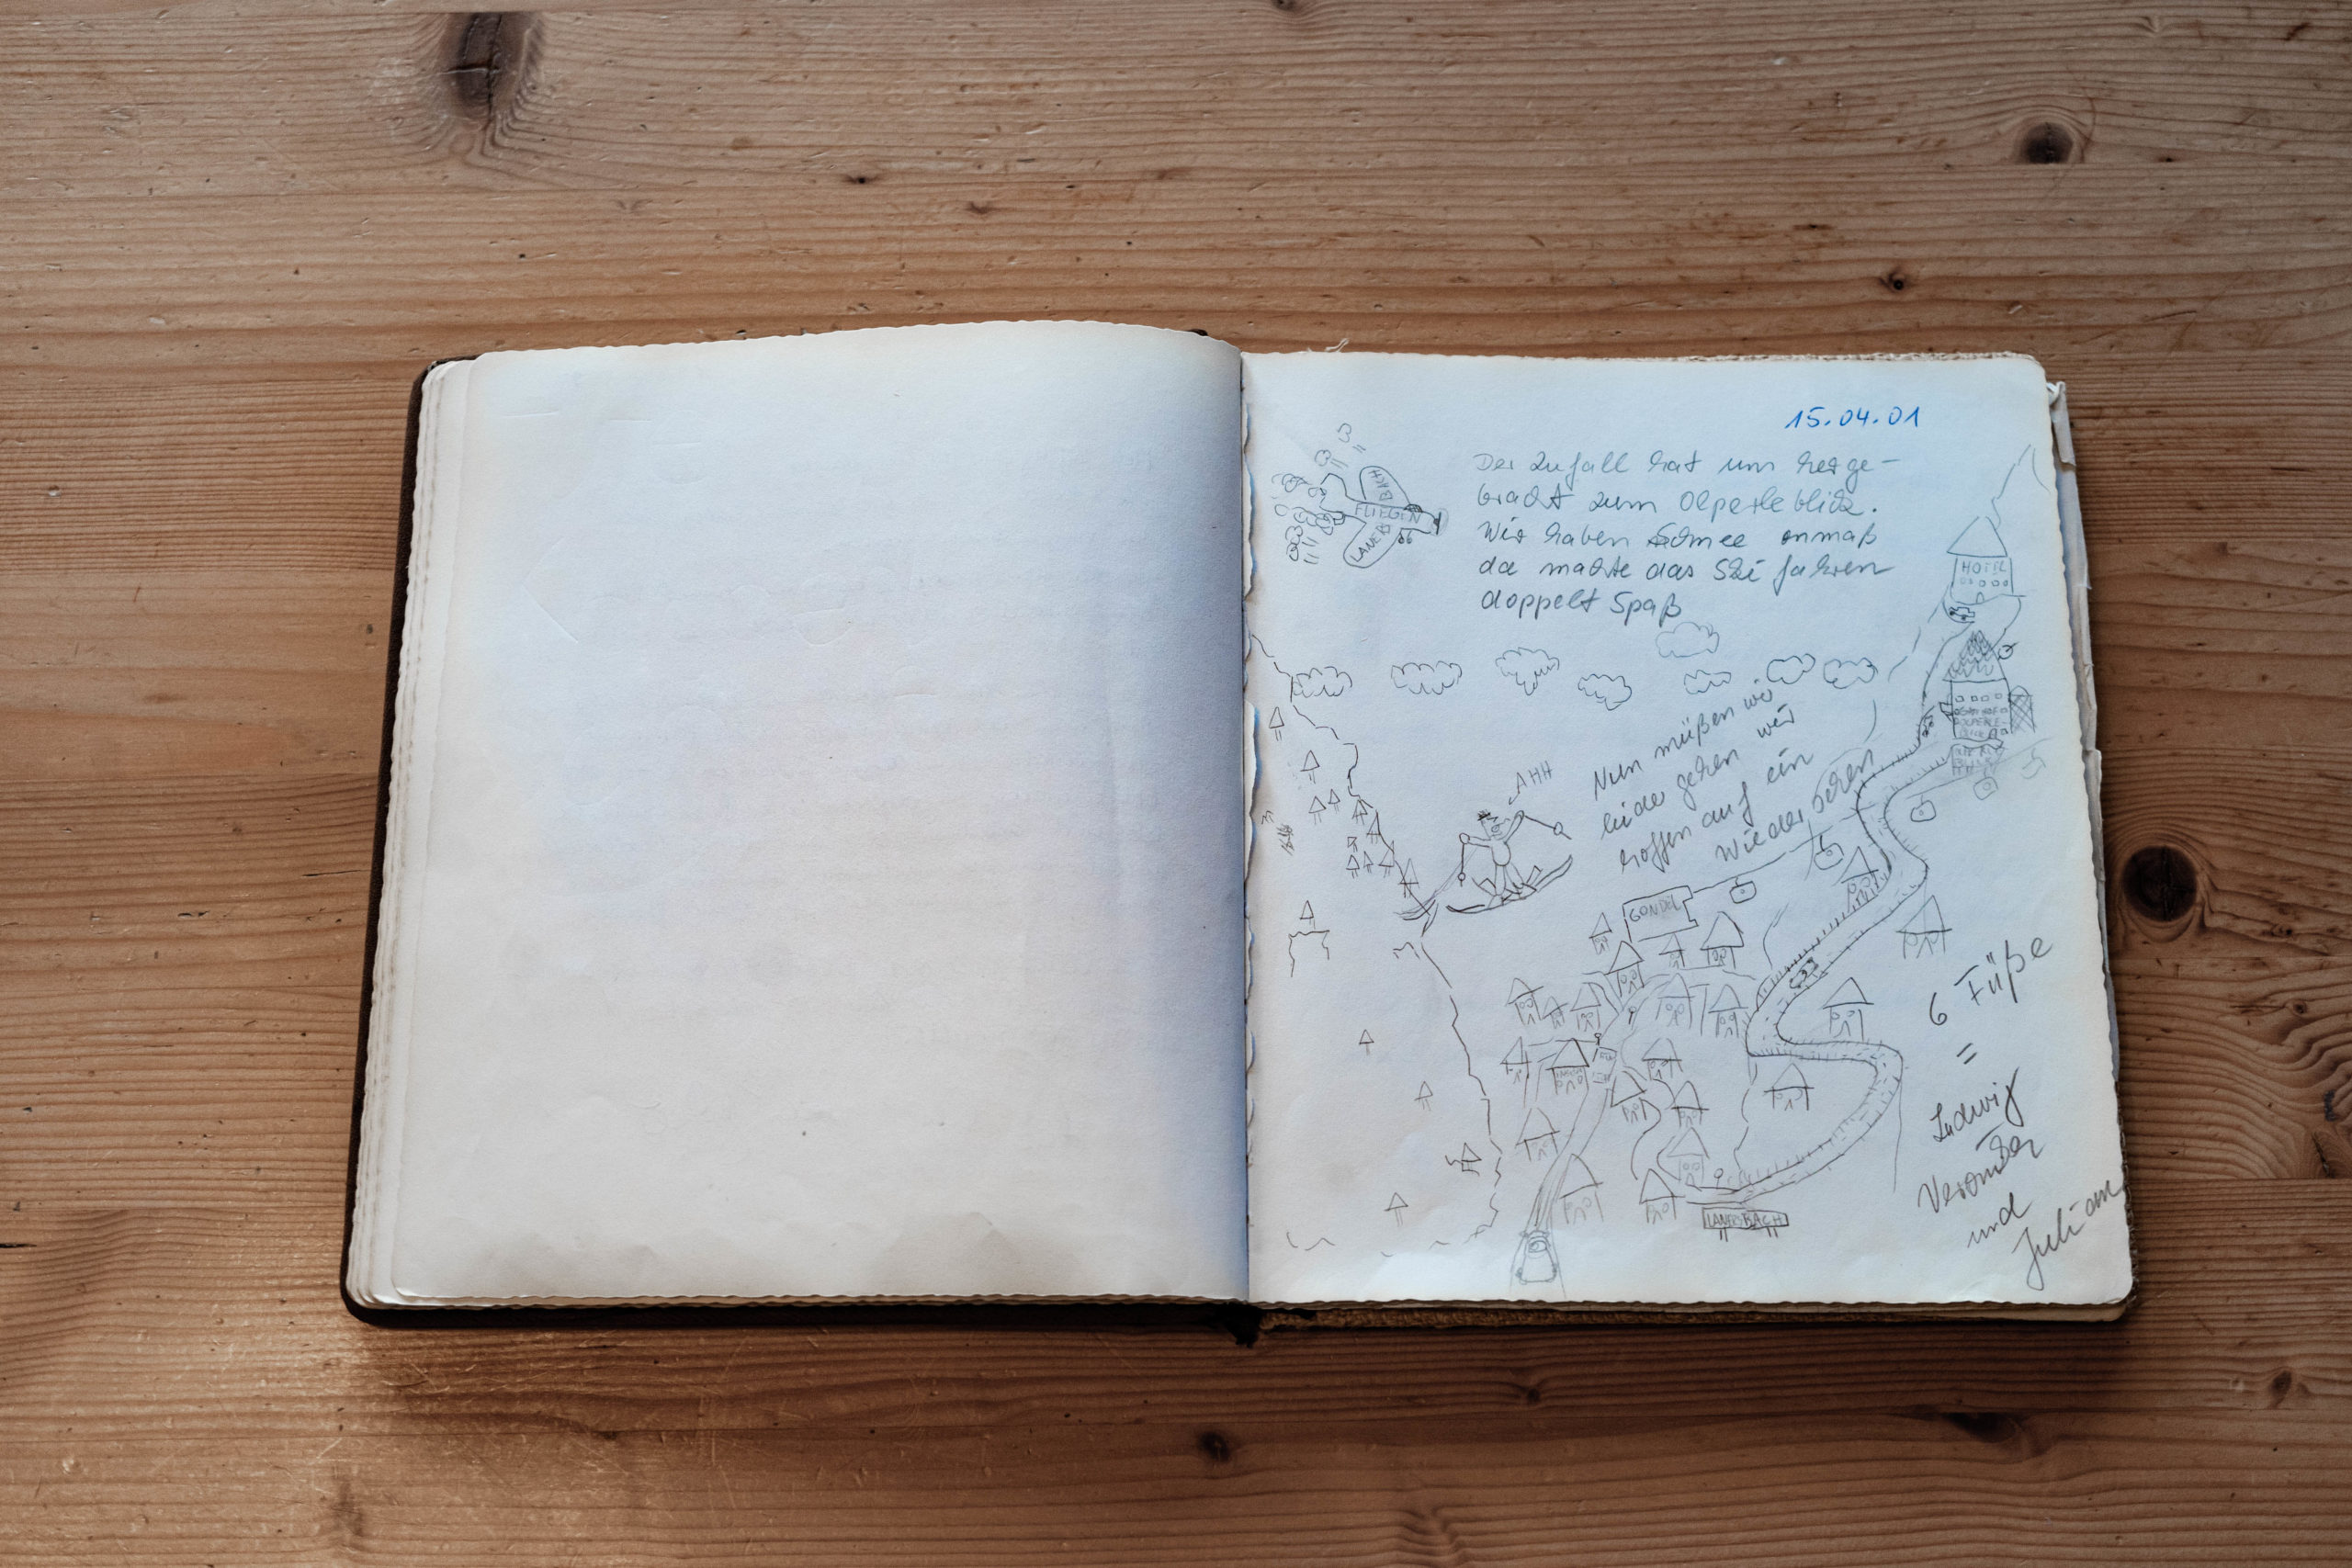 15.04.01
Der Zufall hat uns herge-
bracht zum Olperleblick.
Wir haben Schnee onmaß
da machte das Ski fahren
doppelt Spaß
BACH
FLIEGEN
LANERS
HOTEL
Nun müßen wir
leider gehen wir
hoffen auf ein
Wieder sehen
AHH
GONDEL
LANERSBACH
6 Füße
=
Ludwig
Veronika
und
Julian